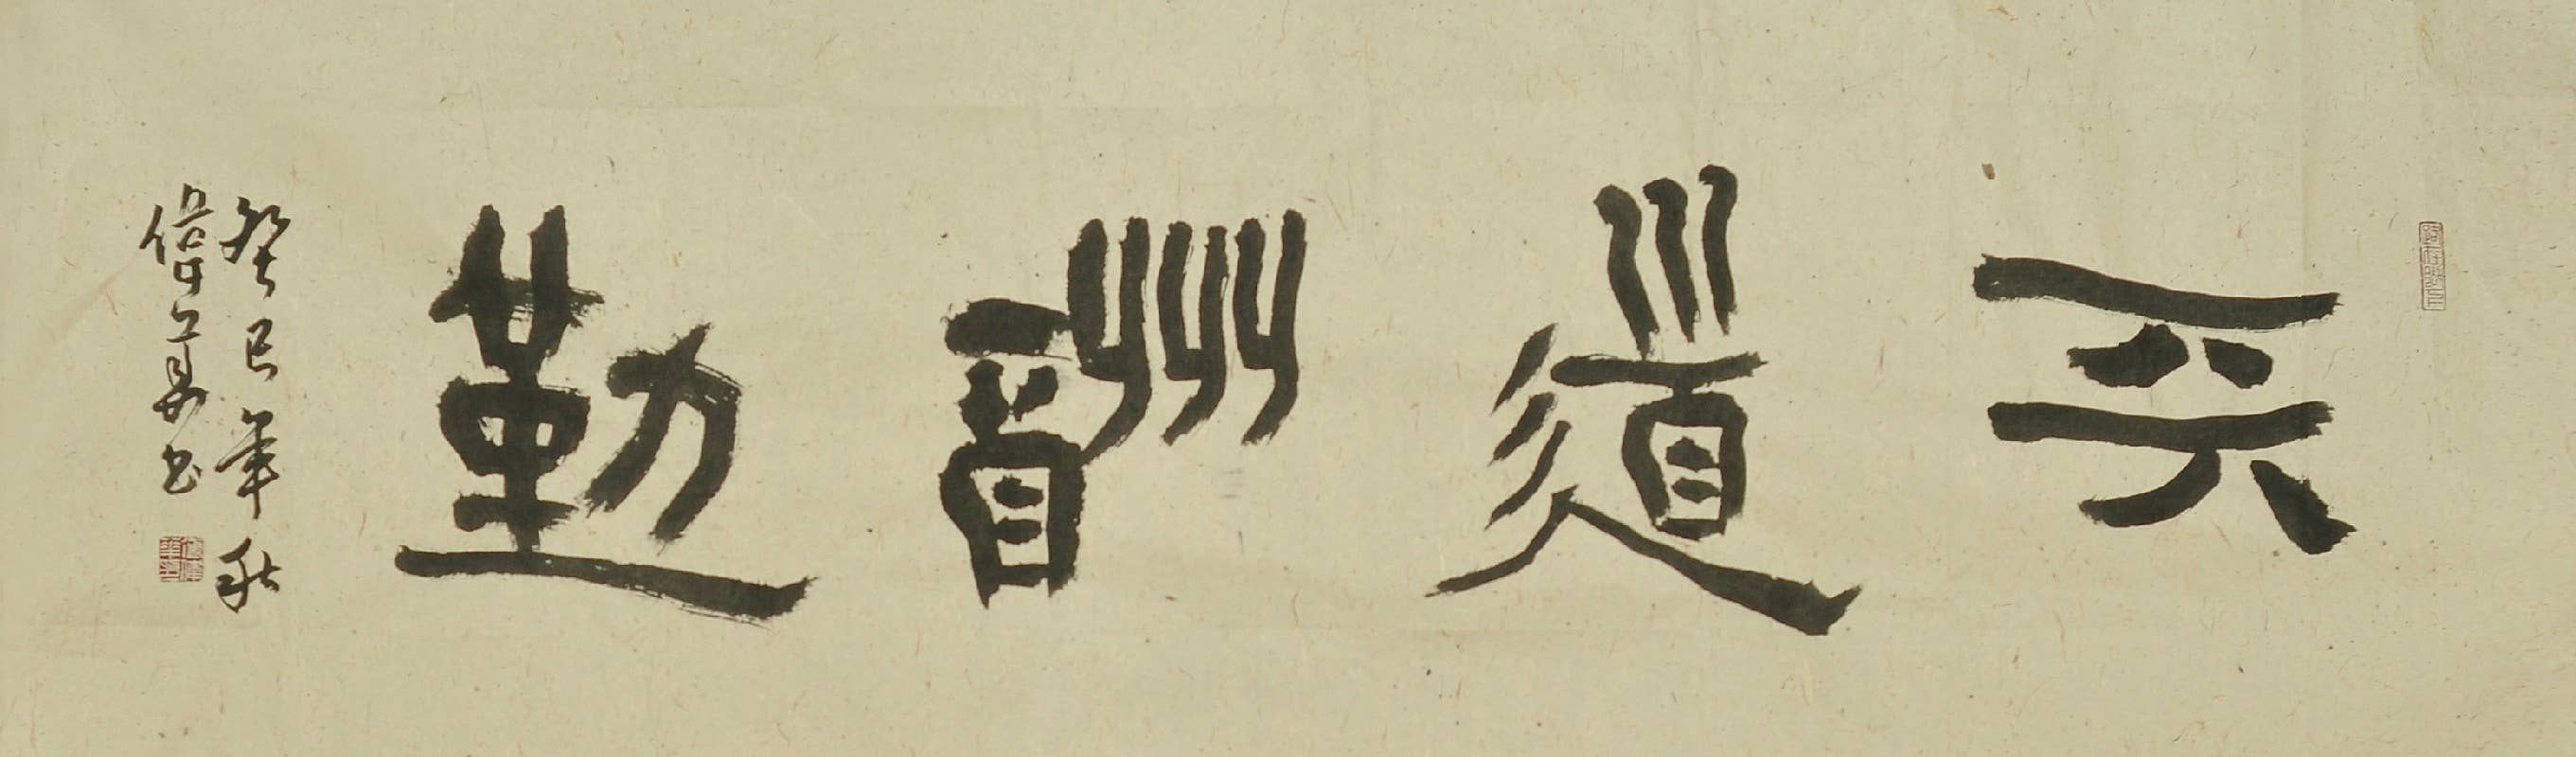 天道酬勤
癸巳年秋
偉 书